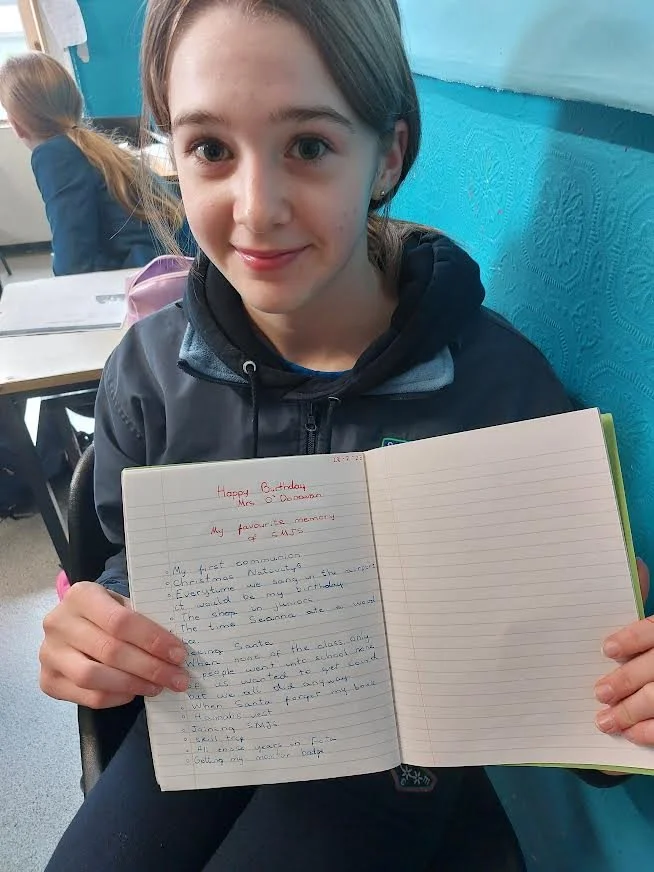 18-2-22
Happy Birthday
Mrs O'Donovan
My favourite memory
of SMJS
My first communion
Christmas Nativitys
Everytime we sang in the airport
it would be my birthday
The shop in juniors
The time Seanna ate a word
Santa
When none of the class any
people went into school none
of us wanted to get covid
but we all did anyway
When Santa forgot my
Joining SMJS
skill trip
All those years in Fota
Getting my monitor badge